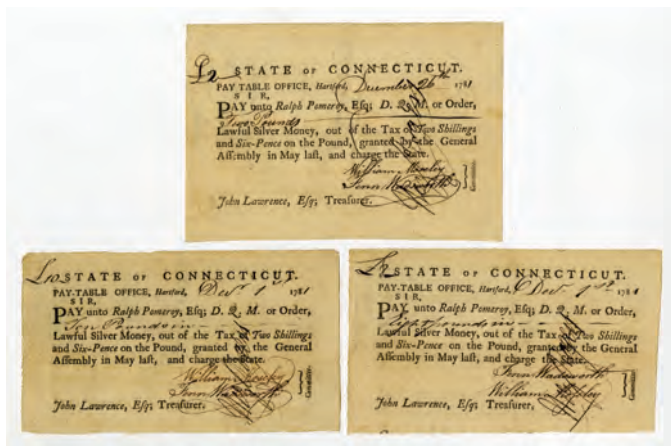 £2 STATE OF CONNECTICUT.
PAY TABLE OFFICE, Hartford, December 26th 1781
SIR,
PAY unto Ralph Pomeroy, Esq; D. Q. M. or Order,
Two Pounds
Lawful Silver Money, out of the Tax of Two Shillings
and Six-Pence on the Pound, granted by the General
Assembly in May last, and charge the State.
William Mosely
Fenn Wadsworth
Committee.
John Lawrence, Esq; Treasurer.
£10 STATE OF CONNECTICUT.
PAY-TABLE OFFICE, Hartford, Decr 1st 1781
SIR,
PAY unto Ralph Pomeroy, Esq; D. Q. M. or Order,
Ten Pounds in
Lawful Silver Money, out of the Tax of Two Shillings
and Six-Pence on the Pound, granted by the General
Assembly in May last, and charge the State.
William Mosely
Fenn Wadsworth
Committee.
John Lawrence, Esq; Treasurer.
£8 STATE OF CONNECTICUT.
PAY-TABLE OFFICE, Hartford, Decr 1st 1781
SIR,
PAY unto Ralph Pomeroy, Esq; D. Q. M. or Order,
Eight Pounds in
Lawful Silver Money, out of the Tax of Two Shillings
and Six-Pence on the Pound, granted by the General
Assembly in May last, and charge the State.
Fenn Wadsworth
William Mosely
Committee.
John Lawrence, Esq; Treasurer.